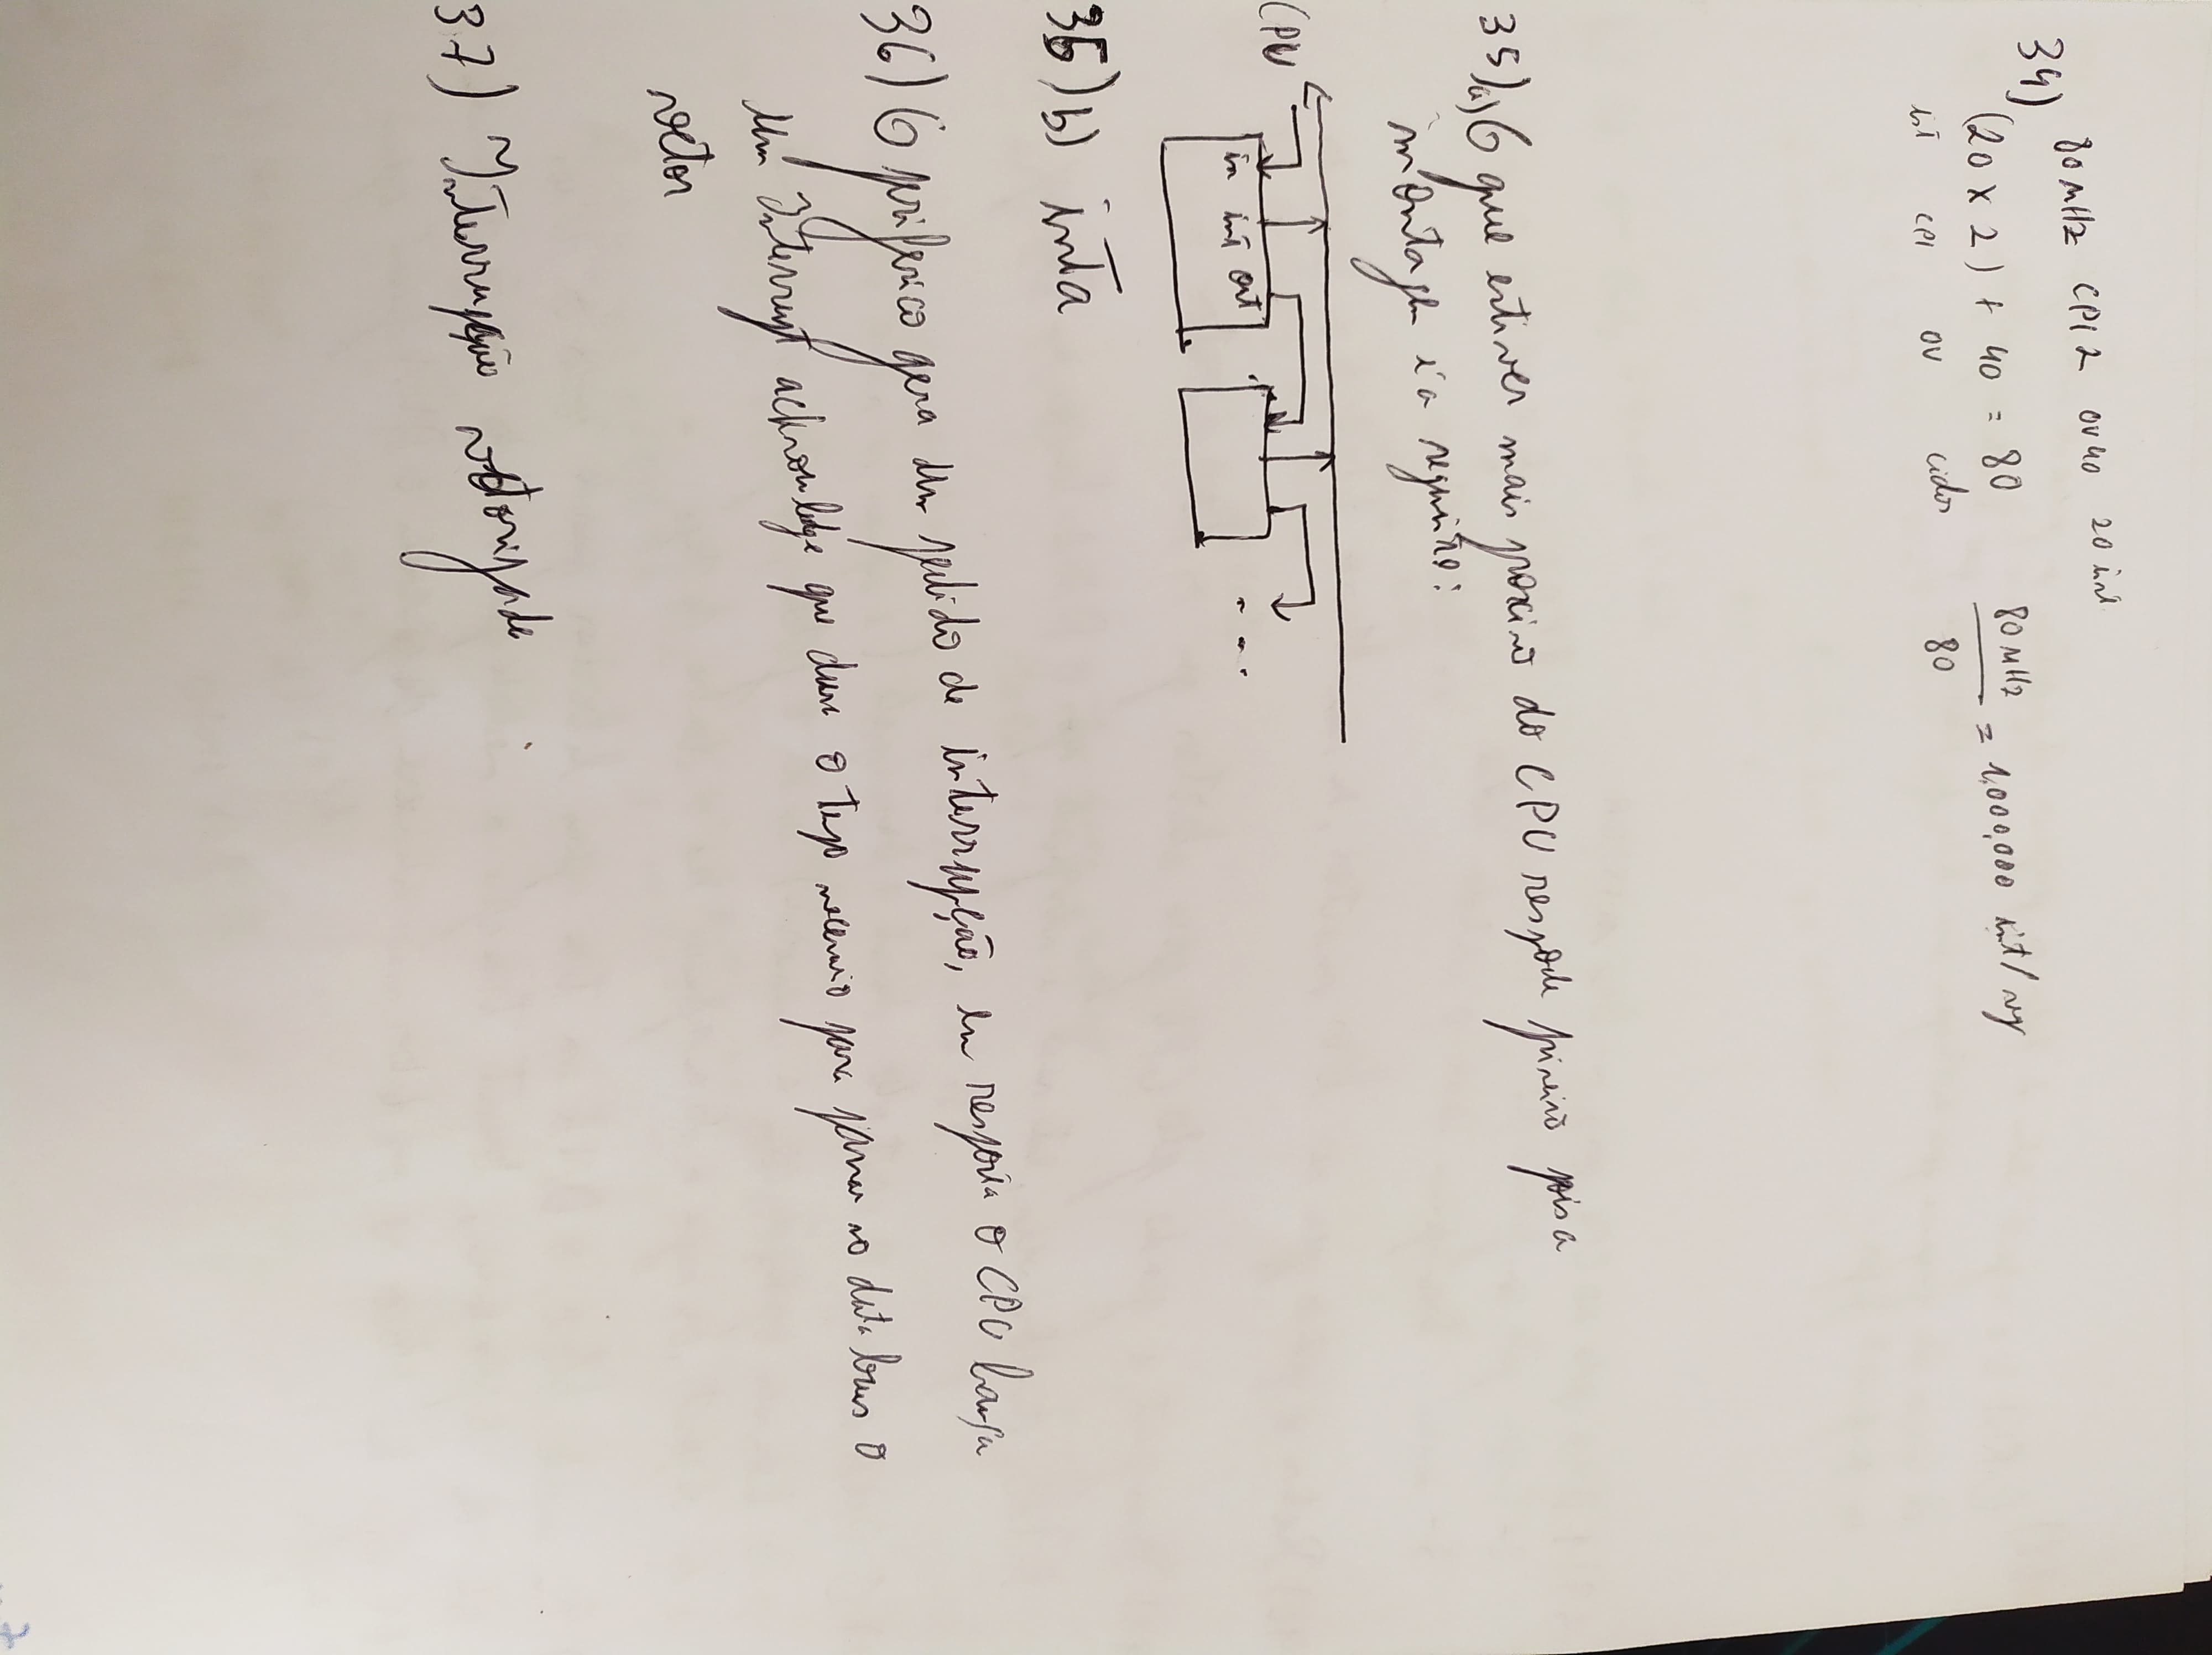 34) 80 MHz CPI 2 OV 40 20 inst
(20 x 2) + 40 = 80 80 MHz / 80 = 1,000,000 int/seg
inst CPI OV ciclos
35) a) O que estiver mais proximo do CPU responde primeiro pois a
montagem é a seguinte:
CPU
in int out
...
35) b) inta
36) O periferico gera um pedido de interrupção, em resposta o CPU lança
um Interrupt acknowledge que dura o tempo necessario para passar no data bus o
vetor
37) Interrupção vetorizada